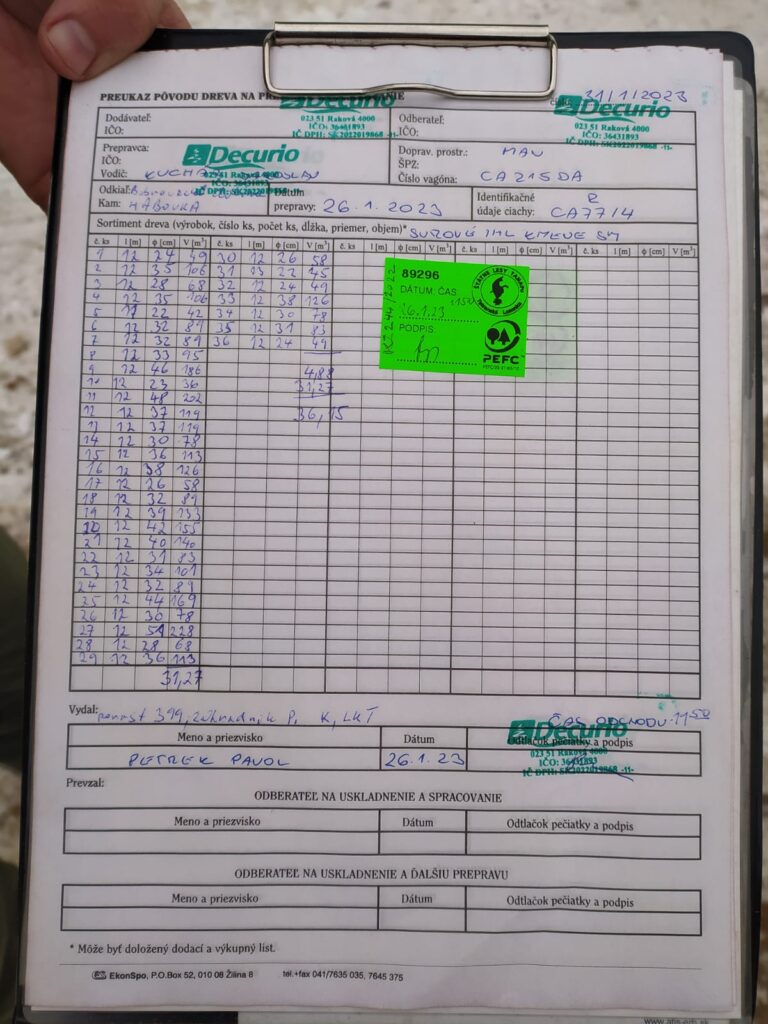 PREUKAZ PÔVODU DREVA NA
31/1/2023
Decurio
023 51 Raková 4000
IČO: 36431893
IČ DPH: SK2022019868 -11-
Decurio
023 51 Raková 4000
IČO: 36431893
IČ DPH: SK2022019868 -11-
Dodávateľ:
IČO:
Odberateľ:
IČO:
Prepravca:
IČO:
Vodič:
Decurio
IČO: 36431893
Doprav. prostr.: MAN
ŠPZ:
Číslo vagóna: CA215DA
Odkiaľ:
Kam: HÁBOVKA
Dátum
prepravy: 26.1.2023
Identifikačné R
údaje ciachy: CA77/4
Sortiment dreva (výrobok, číslo ks, počet ks, dĺžka, priemer, objem)* SUROVÉ IHL KMENE SM
č. ks l [m] ϕ [cm] V [m³] č. ks l [m] ϕ [cm] V [m³] č. ks l [m] ϕ [cm] V [m³] č. ks l [m] ϕ [cm] V [m³] č. ks l [m] ϕ [cm] V [m³]
1 12 24 49 30 12 26 58
2 12 35 106 31 13 22 45
3 12 28 68 32 12 24 49
4 12 35 106 33 12 38 126
5 12 22 42 34 12 30 78
6 12 32 89 35 12 31 83
7 12 32 89 36 12 24 49
8 12 33 95
9 12 46 186 4,88
10 12 23 36 31,27
11 12 48 202
12 12 37 119 36,15
13 12 37 119
14 12 30 78
15 12 36 113
16 12 38 126
17 12 26 58
18 12 32 89
19 12 39 133
20 12 42 155
21 12 40 140
22 12 31 83
23 12 34 101
24 12 32 89
25 12 44 169
26 12 30 78
27 12 51 228
28 12 28 68
29 12 36 113
31,27
89296
DÁTUM, ČAS
26.1.23 11:50
PODPIS
ŠTÁTNE LESY TANAPU
PEFC
Vydal: porast 399, záhradník P. K, LKT
ČAS ODCHODU: 11 50
Meno a priezvisko Dátum Odtlačok pečiatky a podpis
PETREK PAVOL 26.1.23
Decurio
023 51 Raková 4000
IČO: 36431893
IČ DPH: SK2022019868 -11-
Prevzal:
ODBERATEĽ NA USKLADNENIE A SPRACOVANIE
Meno a priezvisko Dátum Odtlačok pečiatky a podpis
ODBERATEĽ NA USKLADNENIE A ĎALŠIU PREPRAVU
Meno a priezvisko Dátum Odtlačok pečiatky a podpis
* Môže byť doložený dodací a výkupný list.
EkonSpo, P.O.Box 52, 010 08 Žilina 8 tel.+fax 041/7635 035, 7645 375